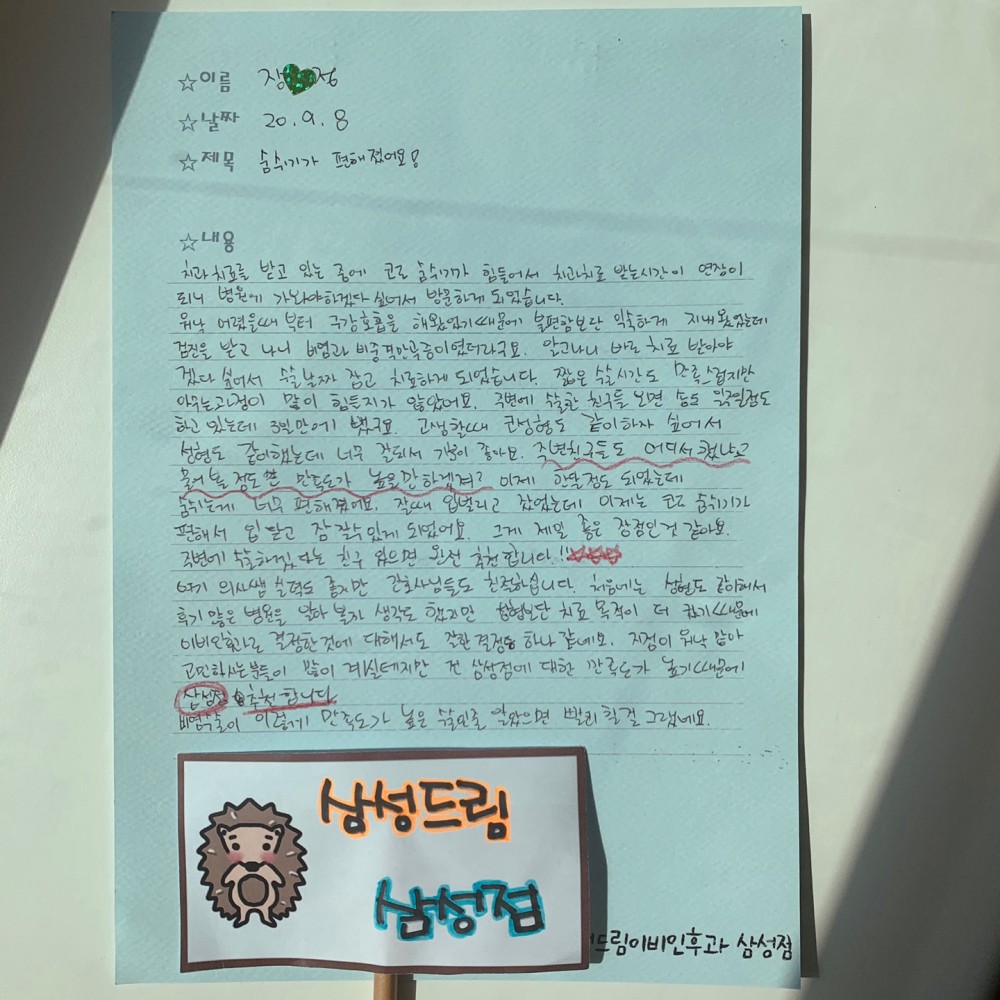 ☆이름 장 정
☆날짜 20.9.8
☆제목 숨쉬기가 편해졌어요!
☆내용
치과치료를 받고 있는 중에 코로 숨쉬기가 힘들어서 치과치료 받는시간이 연장이
되니 병원에 가봐야하겠다 싶어서 방문하게 되었습니다.
워낙 어렸을때 부터 구강호흡을 해왔었기때문에 불편함보단 익숙하게 지내왔었는데
검진을 받고 나니 비염과 비중격만곡증이였더라구요. 알고나니 바로 치료 받아야
겠다 싶어서 수술날짜 잡고 치료하게 되었습니다. 짧은 수술시간도 만족스럽지만
아무는과정이 많이 힘들지가 않았어요. 주변에 수술한 친구들 보면 솜도 일주일정도
하고 있는데 3일만에 뺐구요. 고생할때 코성형도 같이하자 싶어서
성형도 같이했는데 너무 잘되서 기분이 좋아요. 주변친구들도 어디서 했냐고
물어볼 정도면 만족도가 높을만 하겠죠? 이제 한달정도 되었는데
숨쉬는게 너무 편해졌어요. 잘때 입벌리고 잤었는데 이제는 코로 숨쉬기가
편해서 입 닫고 잠 잘수있게 되었어요. 그게 제일 좋은 장점인것 같아요.
주변에 수술하겠다는 친구 있으면 완전 추천합니다.!!
여기 의사쌤 실력도 좋지만 간호사님들도 친절하십니다. 처음에는 성형도 같이해서
후기 많은 병원을 알아 볼까 생각도 했지만 일단 치료 목적이 더 컸기때문에
이비인후과로 결정한것에 대해서도 잘한 결정중 하나 같네요. 지점이 워낙 많아
고민하시는분들이 많이 계실테지만 전 삼성점에 대한 만족도가 높기때문에
삼성점 추천합니다.
비염수술이 이렇게 만족도가 높은 수술인줄 알았으면 빨리 할걸 그랬네요.
삼성드림
삼성점
드림이비인후과 삼성점